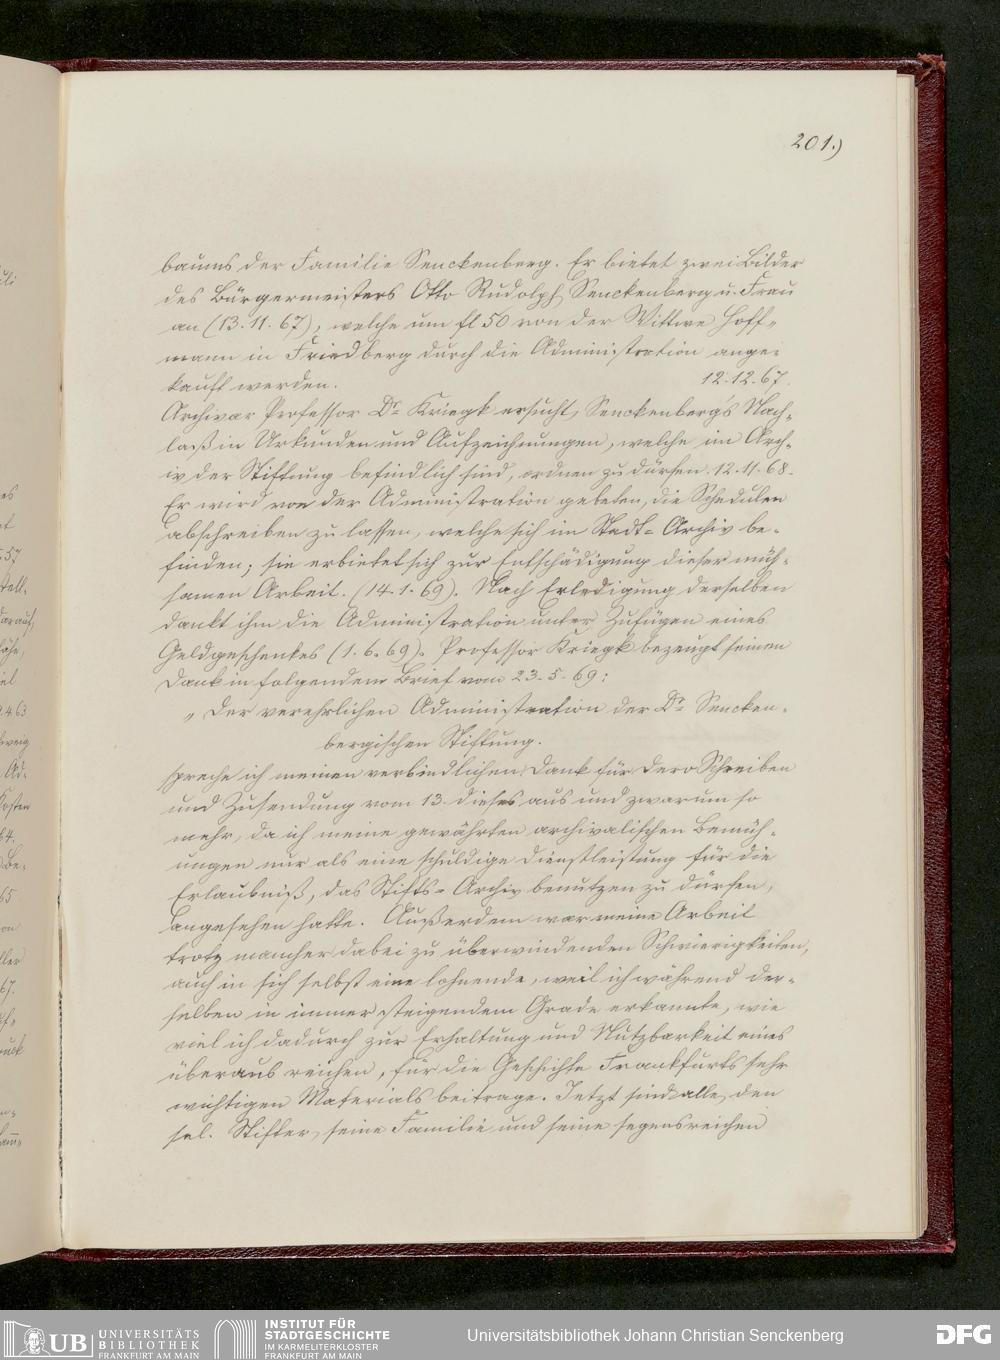 201.)
baums der Familie Senckenberg. Er bietet zwei Bilder
des Bürgermeisters Otto Rudolph Senckenberg u. Frau
an (13.11.67), welche um fl 50 von der Wittwe Hoff-
mann in Friedberg durch die Administration ange-
kauft werden. 12.12.67.
Archivar Professor Dr Kriegk ersucht, Senckenberg's Nach-
laß in Urkunden und Aufzeichnungen, welche im Arch-
iv der Stiftung befindlich sind, ordnen zu dürfen. 12.11.68.
Er wird von der Administration gebeten, die Schedulen
abschreiben zu lassen, welche sich im Stadt-Archiv be-
finden; sie erbietet sich zur Entschädigung dieser müh-
samen Arbeit. (14.1.69). Nach Erledigung derselben
dankt ihm die Administration unter Zufügen eines
Geldgeschenkes (1.6.69). Professor Kriegk bezeugt seinen
Dank in folgendem Brief vom 23.5.69:
„Der verehrlichen Administration der Dr Sencken-
bergischen Stiftung.
spreche ich meinen verbindlichen Dank für dero Schreiben
und Zusendung vom 13. dieses aus und zwar um so
mehr, da ich meine gewährten archivalischen Bemüh-
ungen nur als eine schuldige Dienstleistung für die
Erlaubniß, das Stifts-Archiv benutzen zu dürfen,
angesehen hatte. Außerdem war meine Arbeit
trotz mancher dabei zu überwindenden Schwierigkeiten,
auch in sich selbst eine lohnende, weil ich während der-
selben in immer steigendem Grade erkannte, wie
viel ich dadurch zur Erhaltung und Nutzbarkeit eines
überaus reichen, für die Geschichte Frankfurts sehr
wichtigen Materials beitrage. Jetzt sind alle, den
sel. Stifter, seine Familie und seine segensreichen
UB UNIVERSITÄTS
BIBLIOTHEK
FRANKFURT AM MAIN
INSTITUT FÜR
STADTGESCHICHTE
IM KARMELITERKLOSTER
FRANKFURT AM MAIN
Universitätsbibliothek Johann Christian Senckenberg
DFG